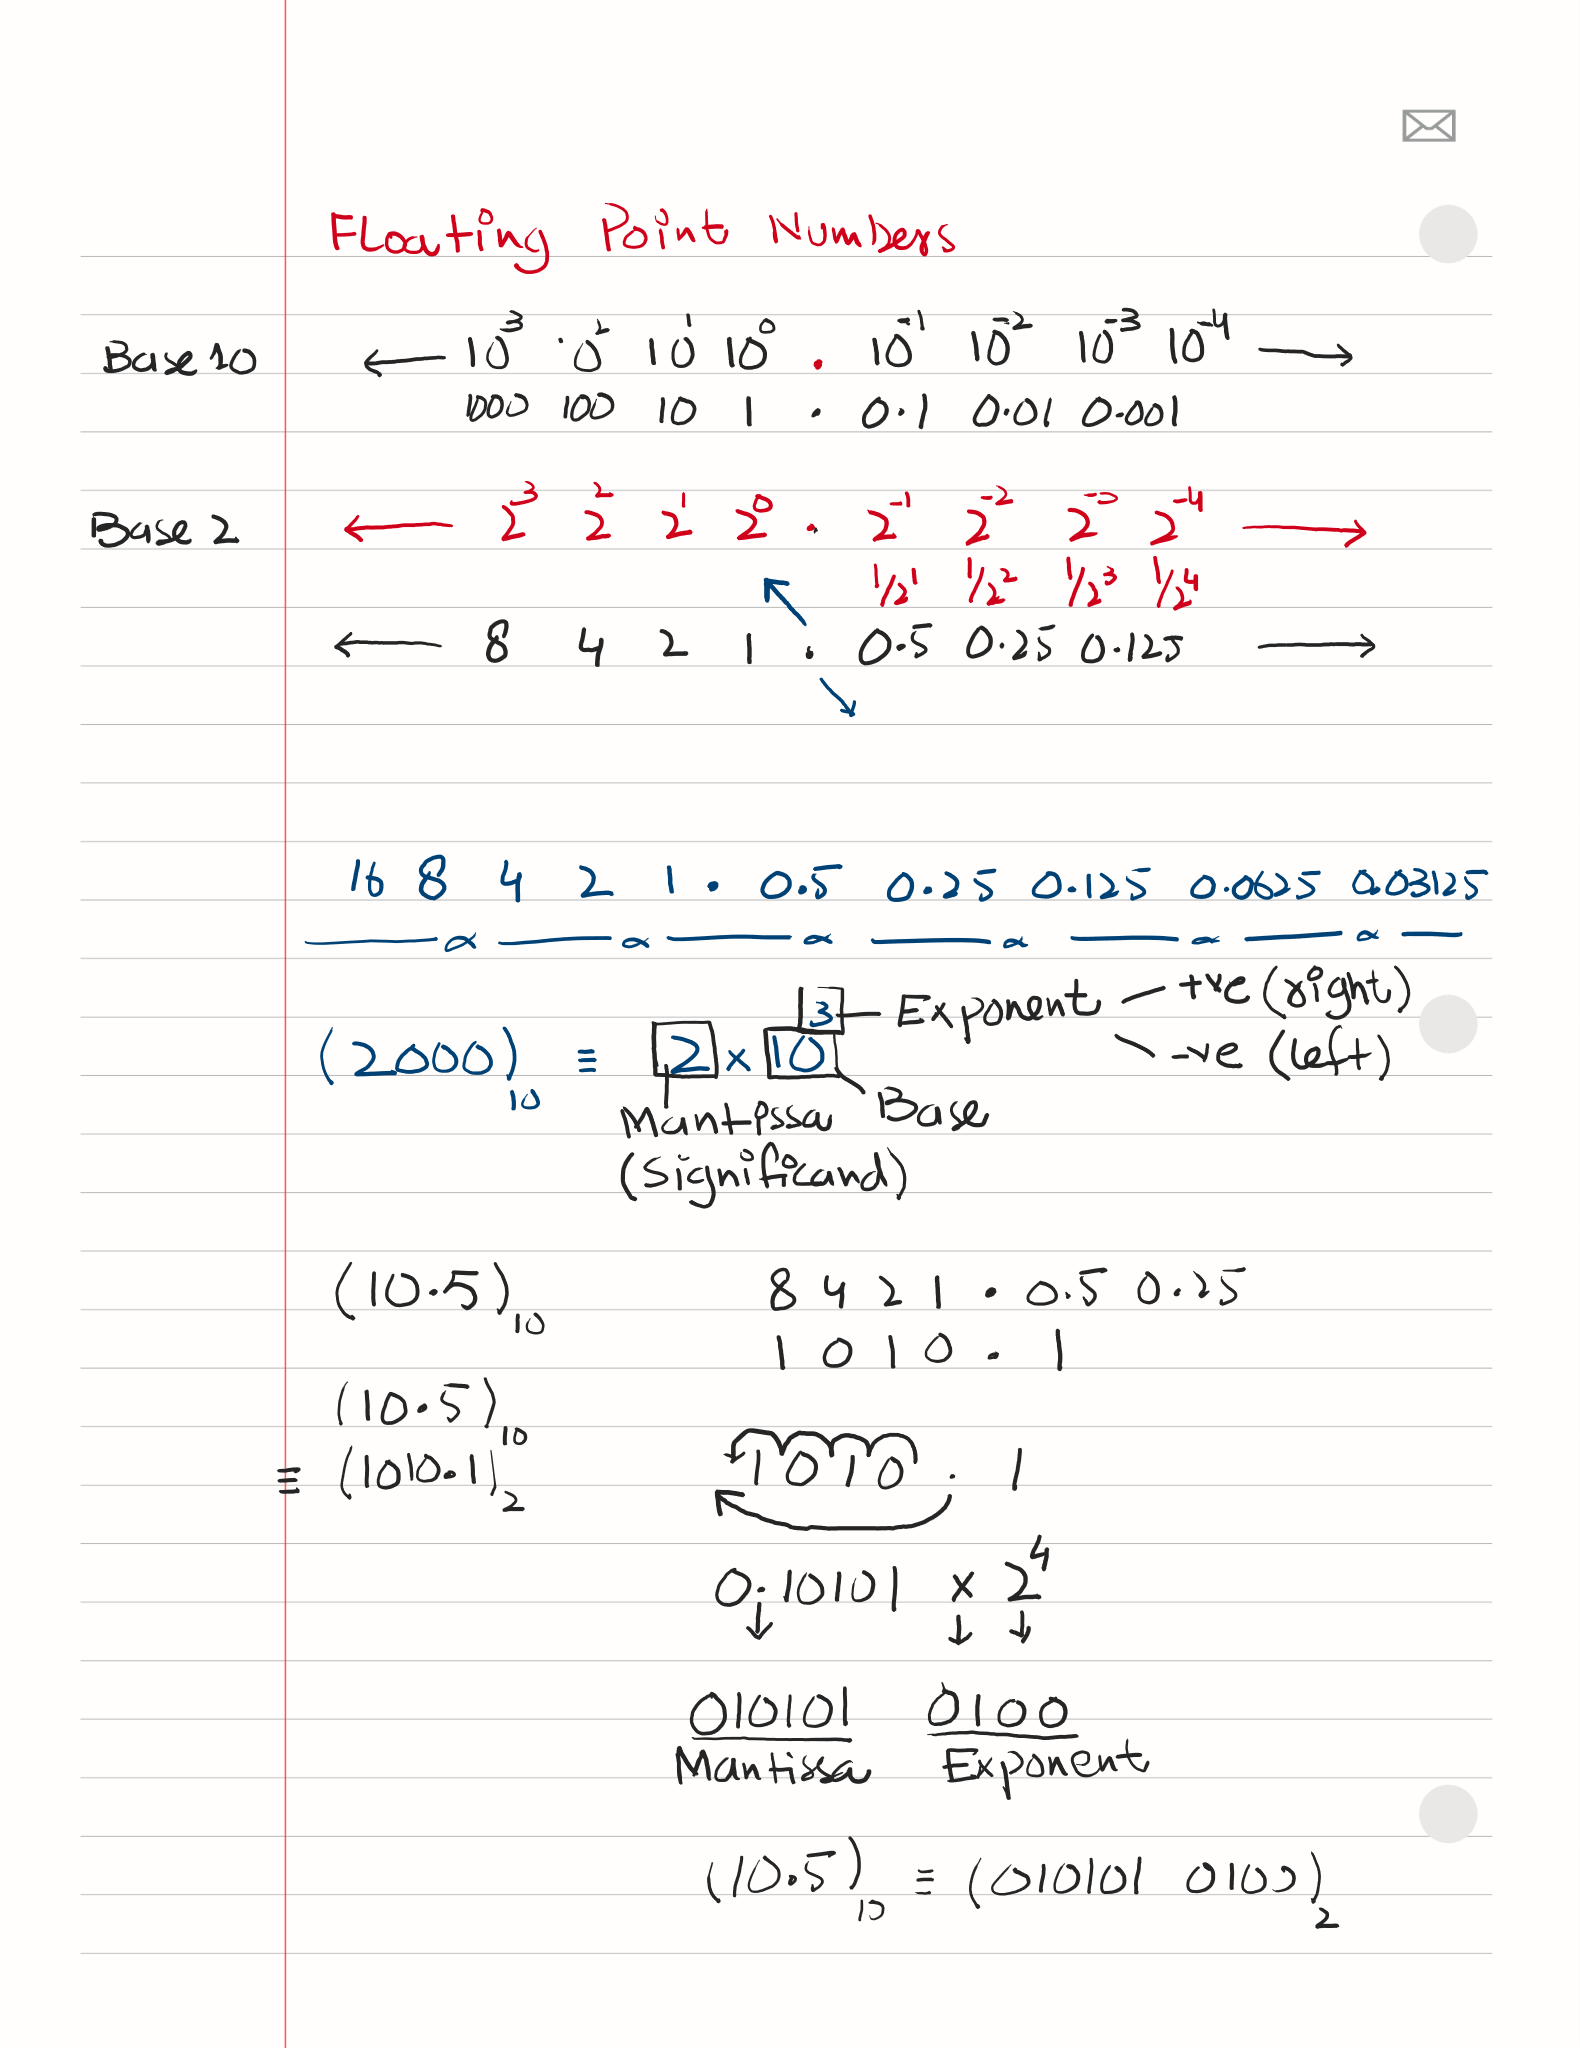 Floating Point Numbers
Base 10 ← 10³ 10² 10¹ 10⁰ . 10⁻¹ 10⁻² 10⁻³ 10⁻⁴ →
1000 100 10 1 . 0.1 0.01 0.001
Base 2 ← 2³ 2² 2¹ 2⁰ . 2⁻¹ 2⁻² 2⁻³ 2⁻⁴ →
1/2¹ 1/2² 1/2³ 1/2⁴
← 8 4 2 1 . 0.5 0.25 0.125 →
16 8 4 2 1 . 0.5 0.25 0.125 0.0625 0.03125
3 Exponent +ve (right)
(2000)₁₀ ≡ 2 × 10 -ve (left)
Mantissa Base
(Significand)
(10.5)₁₀ 8 4 2 1 . 0.5 0.25
1 0 1 0 . 1
(10.5)₁₀
≡ (1010.1)₂ 1010 . 1
0.10101 × 2⁴
010101 0100
Mantissa Exponent
(10.5)₁₀ ≡ (010101 0100)₂